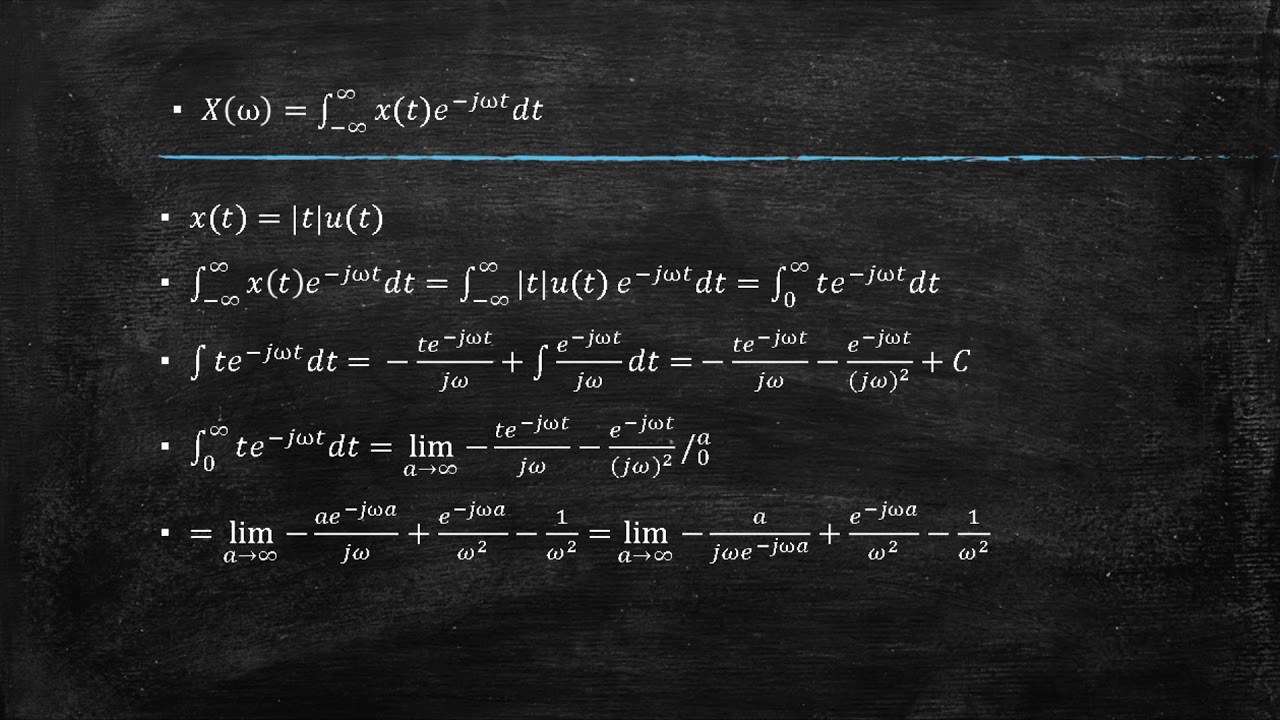 ▪ X(ω) = ∫_{−∞}^{∞} x(t)e^{−jωt}dt
▪ x(t) = |t|u(t)
▪ ∫_{−∞}^{∞} x(t)e^{−jωt}dt = ∫_{−∞}^{∞} |t|u(t) e^{−jωt}dt = ∫_{0}^{∞} te^{−jωt}dt
▪ ∫ te^{−jωt}dt = −\frac{te^{−jωt}}{jω} + ∫ \frac{e^{−jωt}}{jω} dt = −\frac{te^{−jωt}}{jω} − \frac{e^{−jωt}}{(jω)^2} + C
▪ ∫_{0}^{∞} te^{−jωt}dt = \lim_{a→∞} −\frac{te^{−jωt}}{jω} − \frac{e^{−jωt}}{(jω)^2} /_{0}^{a}
▪ = \lim_{a→∞} −\frac{ae^{−jωa}}{jω} + \frac{e^{−jωa}}{ω^2} − \frac{1}{ω^2} = \lim_{a→∞} −\frac{a}{jωe^{−jωa}} + \frac{e^{−jωa}}{ω^2} − \frac{1}{ω^2}